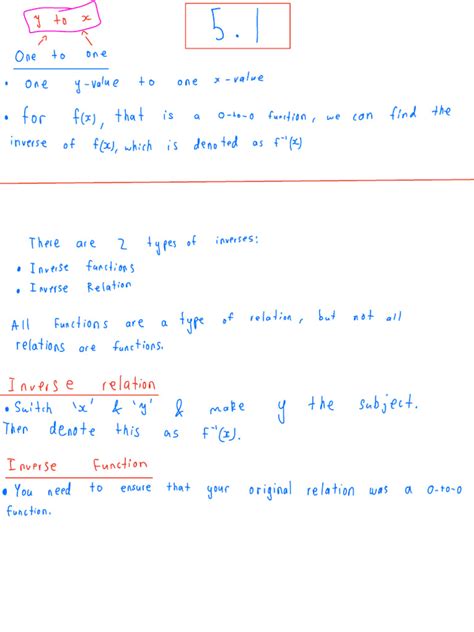 y to x
5.1
One to one
• One y-value to one x-value
• for f(x), that is a o-to-o function, we can find the
inverse of f(x), which is denoted as f⁻¹(x)
There are 2 types of inverses:
• Inverse functions
• Inverse Relation
All Functions are a type of relation, but not all
relations are functions.
Inverse relation
• Switch 'x' & 'y' & make y the subject.
Then denote this as f⁻¹(x).
Inverse Function
• You need to ensure that your original relation was a o-to-o
function.